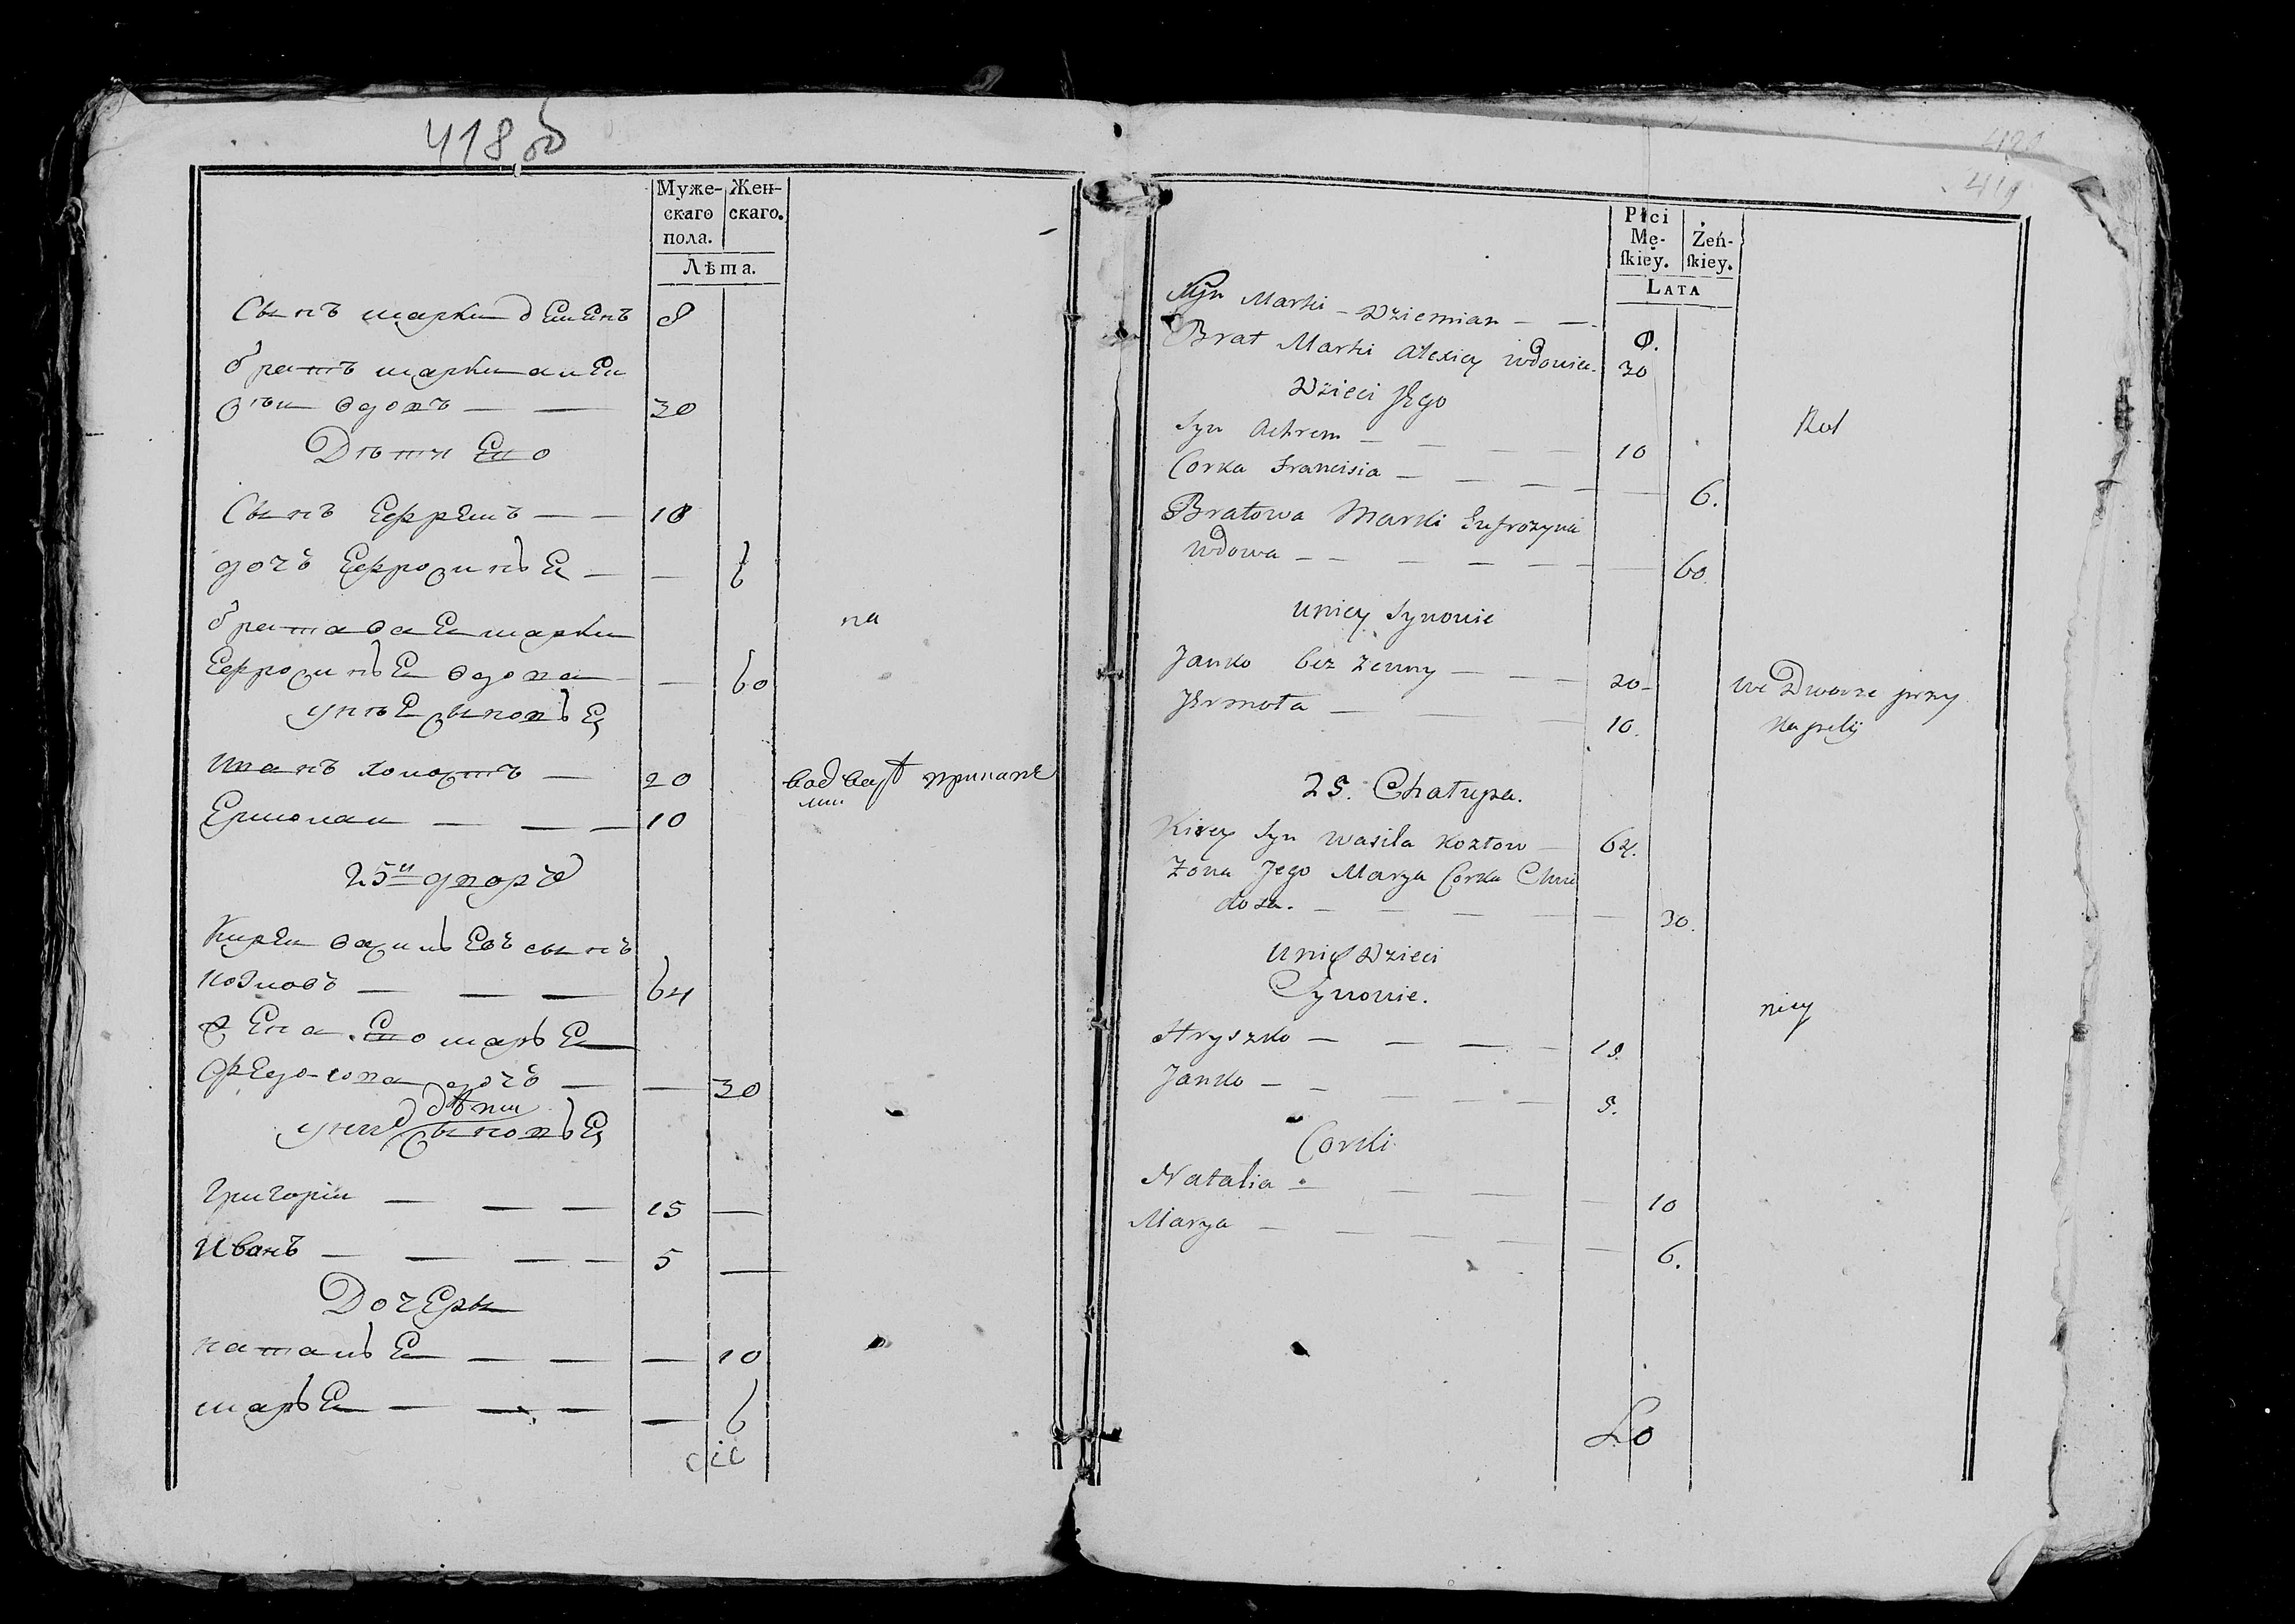 418 об
Муже-
скаго
пола.
Жен-
скаго.
Лѣта.
Сынъ марки деменъ 8
братъ марки алеи
сѣи вдовъ — — 30
Дѣти Его
Сынъ Ефремъ — — 10
дочъ Ефросинье — — 6
братавае марки
Ефросинье вдова — — 60
унѣе сыновье
иванъ холостъ — 20
Ермолаи — — — 10
25й дворъ
Киреи васильевъ сынъ
козловъ — — — 64
жена его марье
Федосова дочъ — — 30
дѣти
сыновье
Григорiи — — — 15 —
Иванъ — — — — 5 —
Дочеры
наталье — — — 10
марье — — — — 6
на
419
Płci
Mę-
ſkiey.
Żeń-
ſkiey.
LATA
Syn Marki — Dziemian — — 8.
Brat Marki Alexiey wdowiec 30
Dzieci Jego
Syn Achrem — — — — 10
Corka Francisia — — — — — 6.
Bratowa Marki Eufrozyna
wdowa — — — — — — — 60.
uniey Synowie
Janko bez zenny — — — 20 —
Jermoła — — — 10.
we Dworze przy
Kapelij
25. Chałupa.
Kirey Syn Wasila Kozłow — 64.
Zona Jego Marya Corka Chwe
dosa. — — — — — 30.
unich Dzieci
Synowie.
Hryszko — — — — 15.
Janko — — — — — 5.
Corki
Natalia — — — — 10
Marya — — — — — — 6.